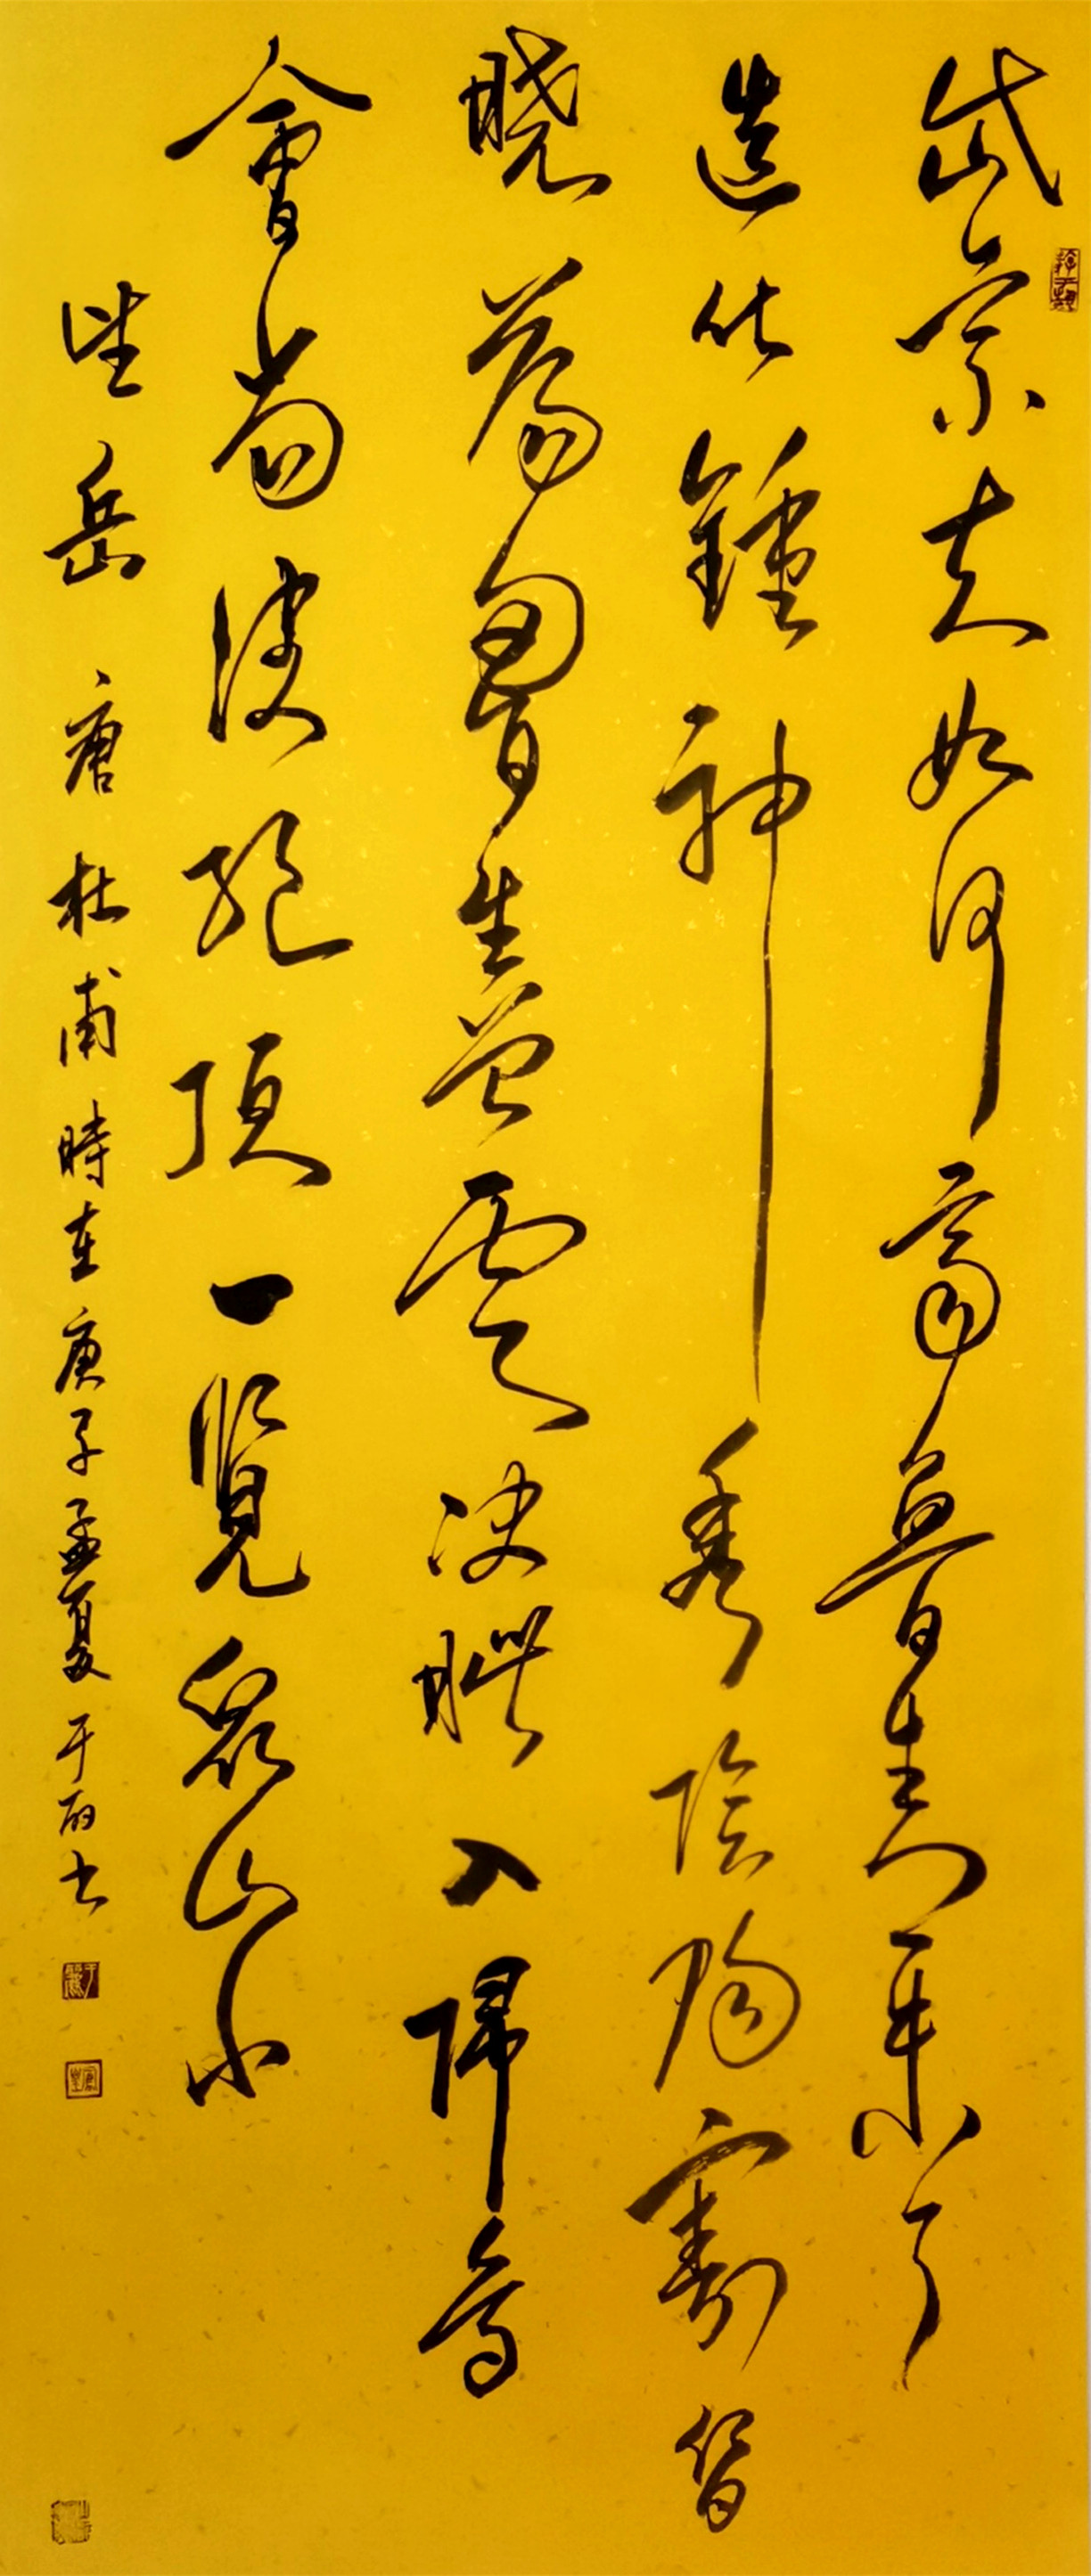 岱宗夫如何齊魯青未了
造化鍾神秀陰陽割昏
曉蕩胸生曾雲決眥入歸鳥
會當凌絕頂一覽眾山小
望岳 唐 杜甫 時在庚子孟夏 于丽书